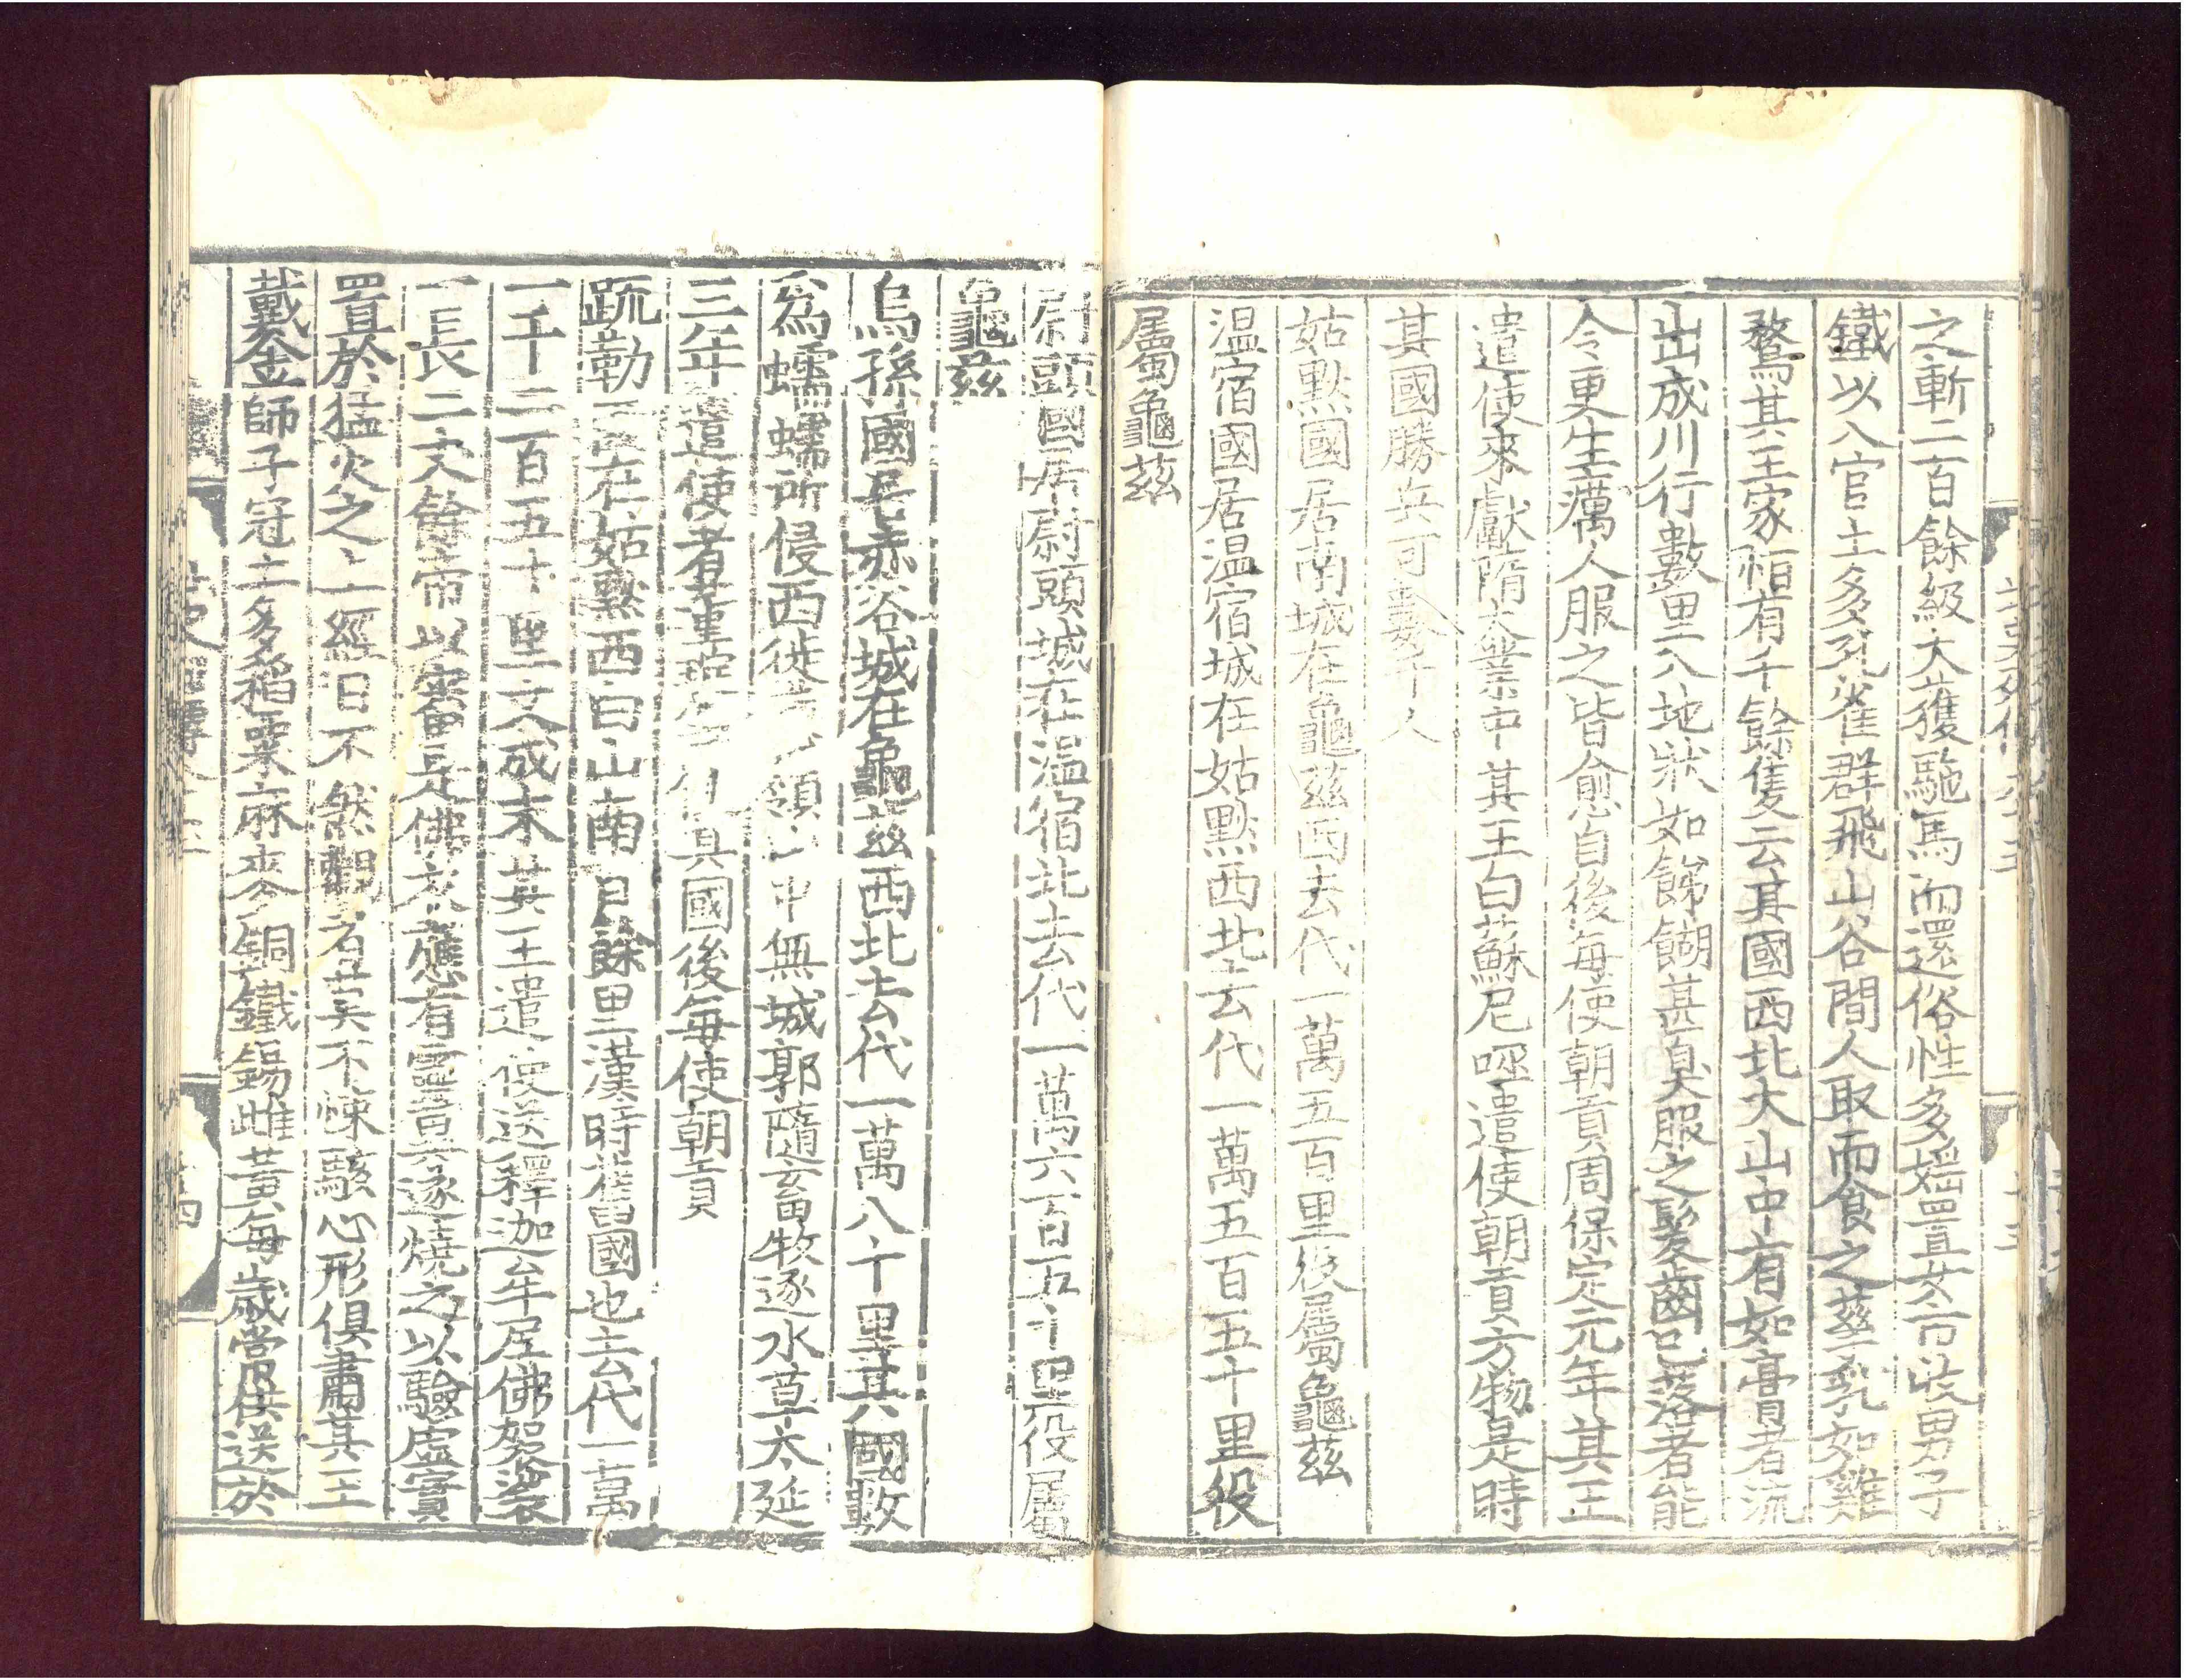 之斬二百餘級大獲駞馬而還俗性多婬置女市收男子
鐵以入官土多孔雀群飛山谷間人取而食之孳乳如雞
鶩其王家恒有千餘隻云其國西北大山中有如膏者流
出成川行數里入地狀如餹餬甚臭服之髮齒已落者能
令更生癘人服之皆愈自後每使朝貢周保定元年其王
遣使來獻隋大業中其王白蘇尼咥遣使朝貢方物是時
其國勝兵可數千人
姑黙國居南城在龜茲西去代一萬五百里役屬龜茲
温宿國居温宿城在姑黙西北去代一萬五百五十里役
屬龜茲
尉頭國居尉頭城在温宿北去代一萬六百五十里役屬
龜茲
烏孫國居赤谷城在龜茲西北去代一萬八十里其國數
爲蠕蠕所侵西徙 領山中無城郭隨畜牧逐水草太延
三年遣使者董琬 使其國後每使朝貢
疏勒國在姑黙西白山南百餘里漢時舊國也去代一萬
一千二百五十里文成末其王遣使送釋迦牟尼佛袈裟
一長二丈餘帝以審是佛衣應有靈異遂燒之以驗虛實
置於猛火之上經日不然觀者莫不悚駭心形俱肅其王
戴金師子冠土多稻粟麻麥銅鐵錫雌黃每歲常供送於